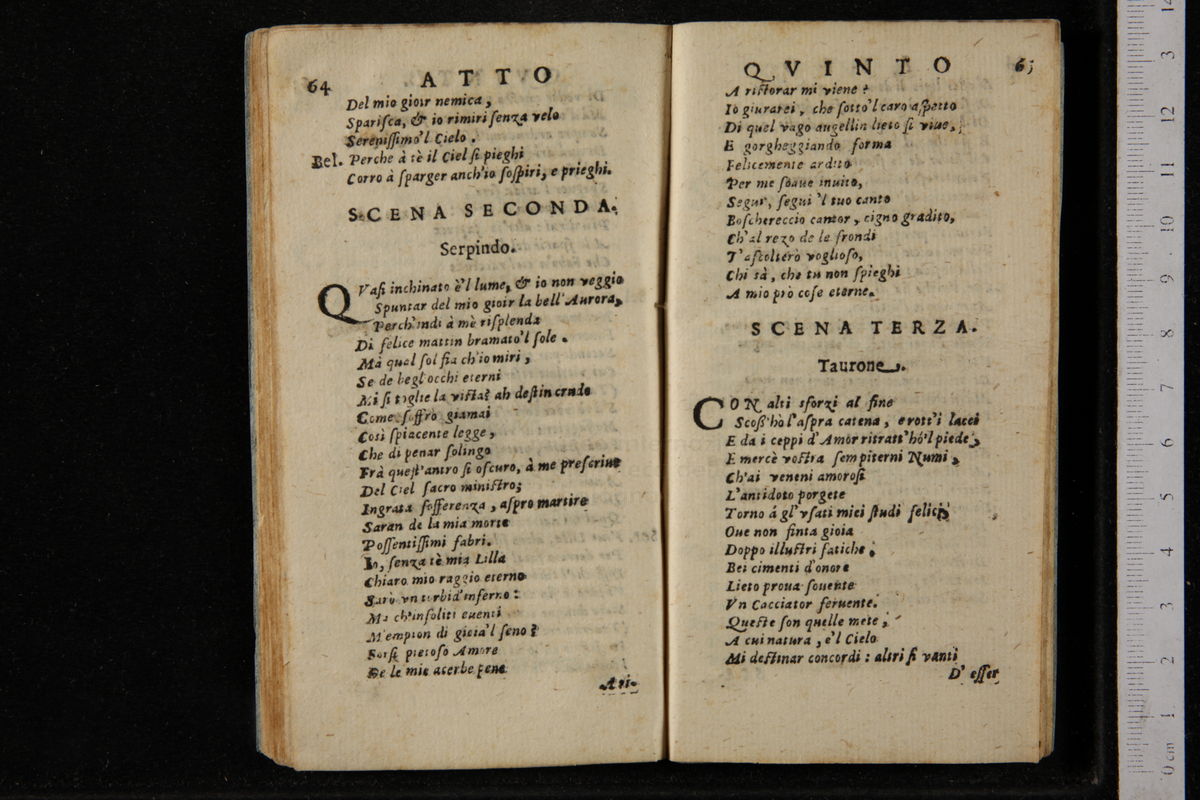 64 ATTO
Del mio gioir nemica,
Sparisca, & io rimiri senza velo
Serenissimo'l Cielo.
Bel. Perche à tè il Ciel si pieghi
Corro à sparger anch'io sospiri, e prieghi.
SCENA SECONDA.
Serpindo.
QVasi inchinato è'l lume, & io non veggio
Spuntar del mio gioir la bell'Aurora,
Perch'indi à mè risplenda
Di felice mattin bramato'l sole.
Mà qual sol fia ch'io miri,
Se de begl'occhi eterni
Mi si toglie la vista? ah destin crudo
Come soffrò giamai
Così spiacente legge,
Che di penar solingo
Frà quest'antro si oscuro, à me prescriue
Del Ciel sacro ministro;
Ingrata sofferenza, aspro martire
Saran de la mia morte
Possentissimi fabri.
Io, senza tè mia Lilla
Chiaro mio raggio eterno
Sarò vn torbid'inferno:
Ma ch'insoliti euenti
M'empion di gioia'l seno?
Forse pietoso Amore
De le mie acerbe pene
A ri-
QVINTO 65
A ristorar mi viene?
Io giurarei, che sotto'l caro aspetto
Di quel vago augellin lieto si viue,
E gorgheggiando forma
Felicemente ardito
Per me soaue inuito,
Segui, segui 'l tuo canto
Boschereccio cantor, cigno gradito,
Ch'al rezo de le frondi
T'ascolterò voglioso,
Chi sà, che tu non spieghi
A mio prò cose eterne.
SCENA TERZA.
Taurone.
CON alti sforzi al fine
Scoss'hò l'aspra catena, e rott'i lacci
E da i ceppi d'Amor ritratt'hó'l piede,
E mercè vostra sempiterni Numi,
Ch'ai veneni amorosi
L'antidoto porgete
Torno á gl'vsati miei studi felici,
Oue non finta gioia
Doppo illustri fatiche,
Bei cimenti d'onore
Lieto proua souente
Vn Cacciator feruente.
Queste son quelle mete,
A cui natura, e'l Cielo
Mi destinar concordi: altri si vanti
D' esser